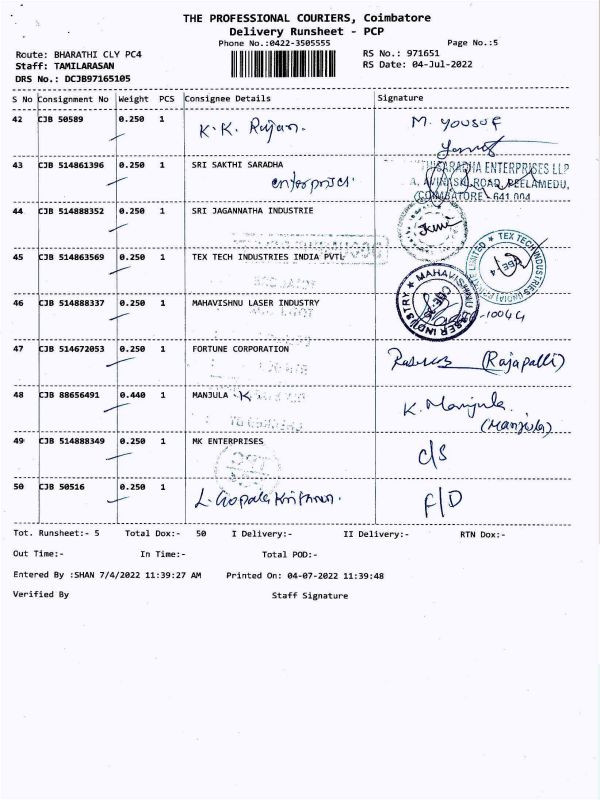 THE PROFESSIONAL COURIERS, Coimbatore
Delivery Runsheet - PCP
Phone No.:0422-3505555
Page No.:5
Route: BHARATHI CLY PC4
RS No.: 971651
Staff: TAMILARASAN
RS Date: 04-Jul-2022
DRS No.: DCJB97165105
S No Consignment No Weight PCS Consignee Details Signature
42 CJB 50589 0.250 1 K.K. Rajan. M. YOUSUF
43 CJB 514861396 0.250 1 SRI SAKTHI SARADHA
enterprises.
SARADHA ENTERPRISES LLP
AVINASHI ROAD, PEELAMEDU,
COIMBATORE - 641 004
44 CJB 514888352 0.250 1 SRI JAGANNATHA INDUSTRIE
45 CJB 514863569 0.250 1 TEX TECH INDUSTRIES INDIA PVTL
TEX TECH INDUSTRIES (INDIA) PRIVATE LIMITED
CBE-4
46 CJB 514888337 0.250 1 MAHAVISHNU LASER INDUSTRY
MAHAVISHNU LASER INDUSTRY
47 CJB 514672053 0.250 1 FORTUNE CORPORATION (Rajapalli)
48 CJB 88656491 0.440 1 MANJULA K K. Manjula.
(Manjula)
49 CJB 514888349 0.250 1 MK ENTERPRISES C/S
50 CJB 50516 0.250 1 L. Gopala Krishnan. F/D
Tot. Runsheet:- 5 Total Dox:- 50 I Delivery:- II Delivery:- RTN Dox:-
Out Time:- In Time:- Total POD:-
Entered By :SHAN 7/4/2022 11:39:27 AM Printed On: 04-07-2022 11:39:48
Verified By Staff Signature